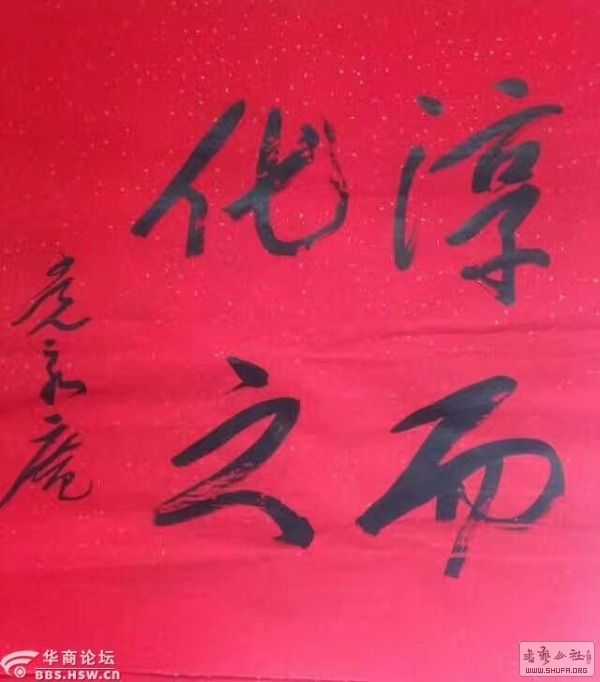 淳而
化之
党永庵
华商论坛
BBS.HSW.CN
書藝公社
WWW.SHUFA.ORG